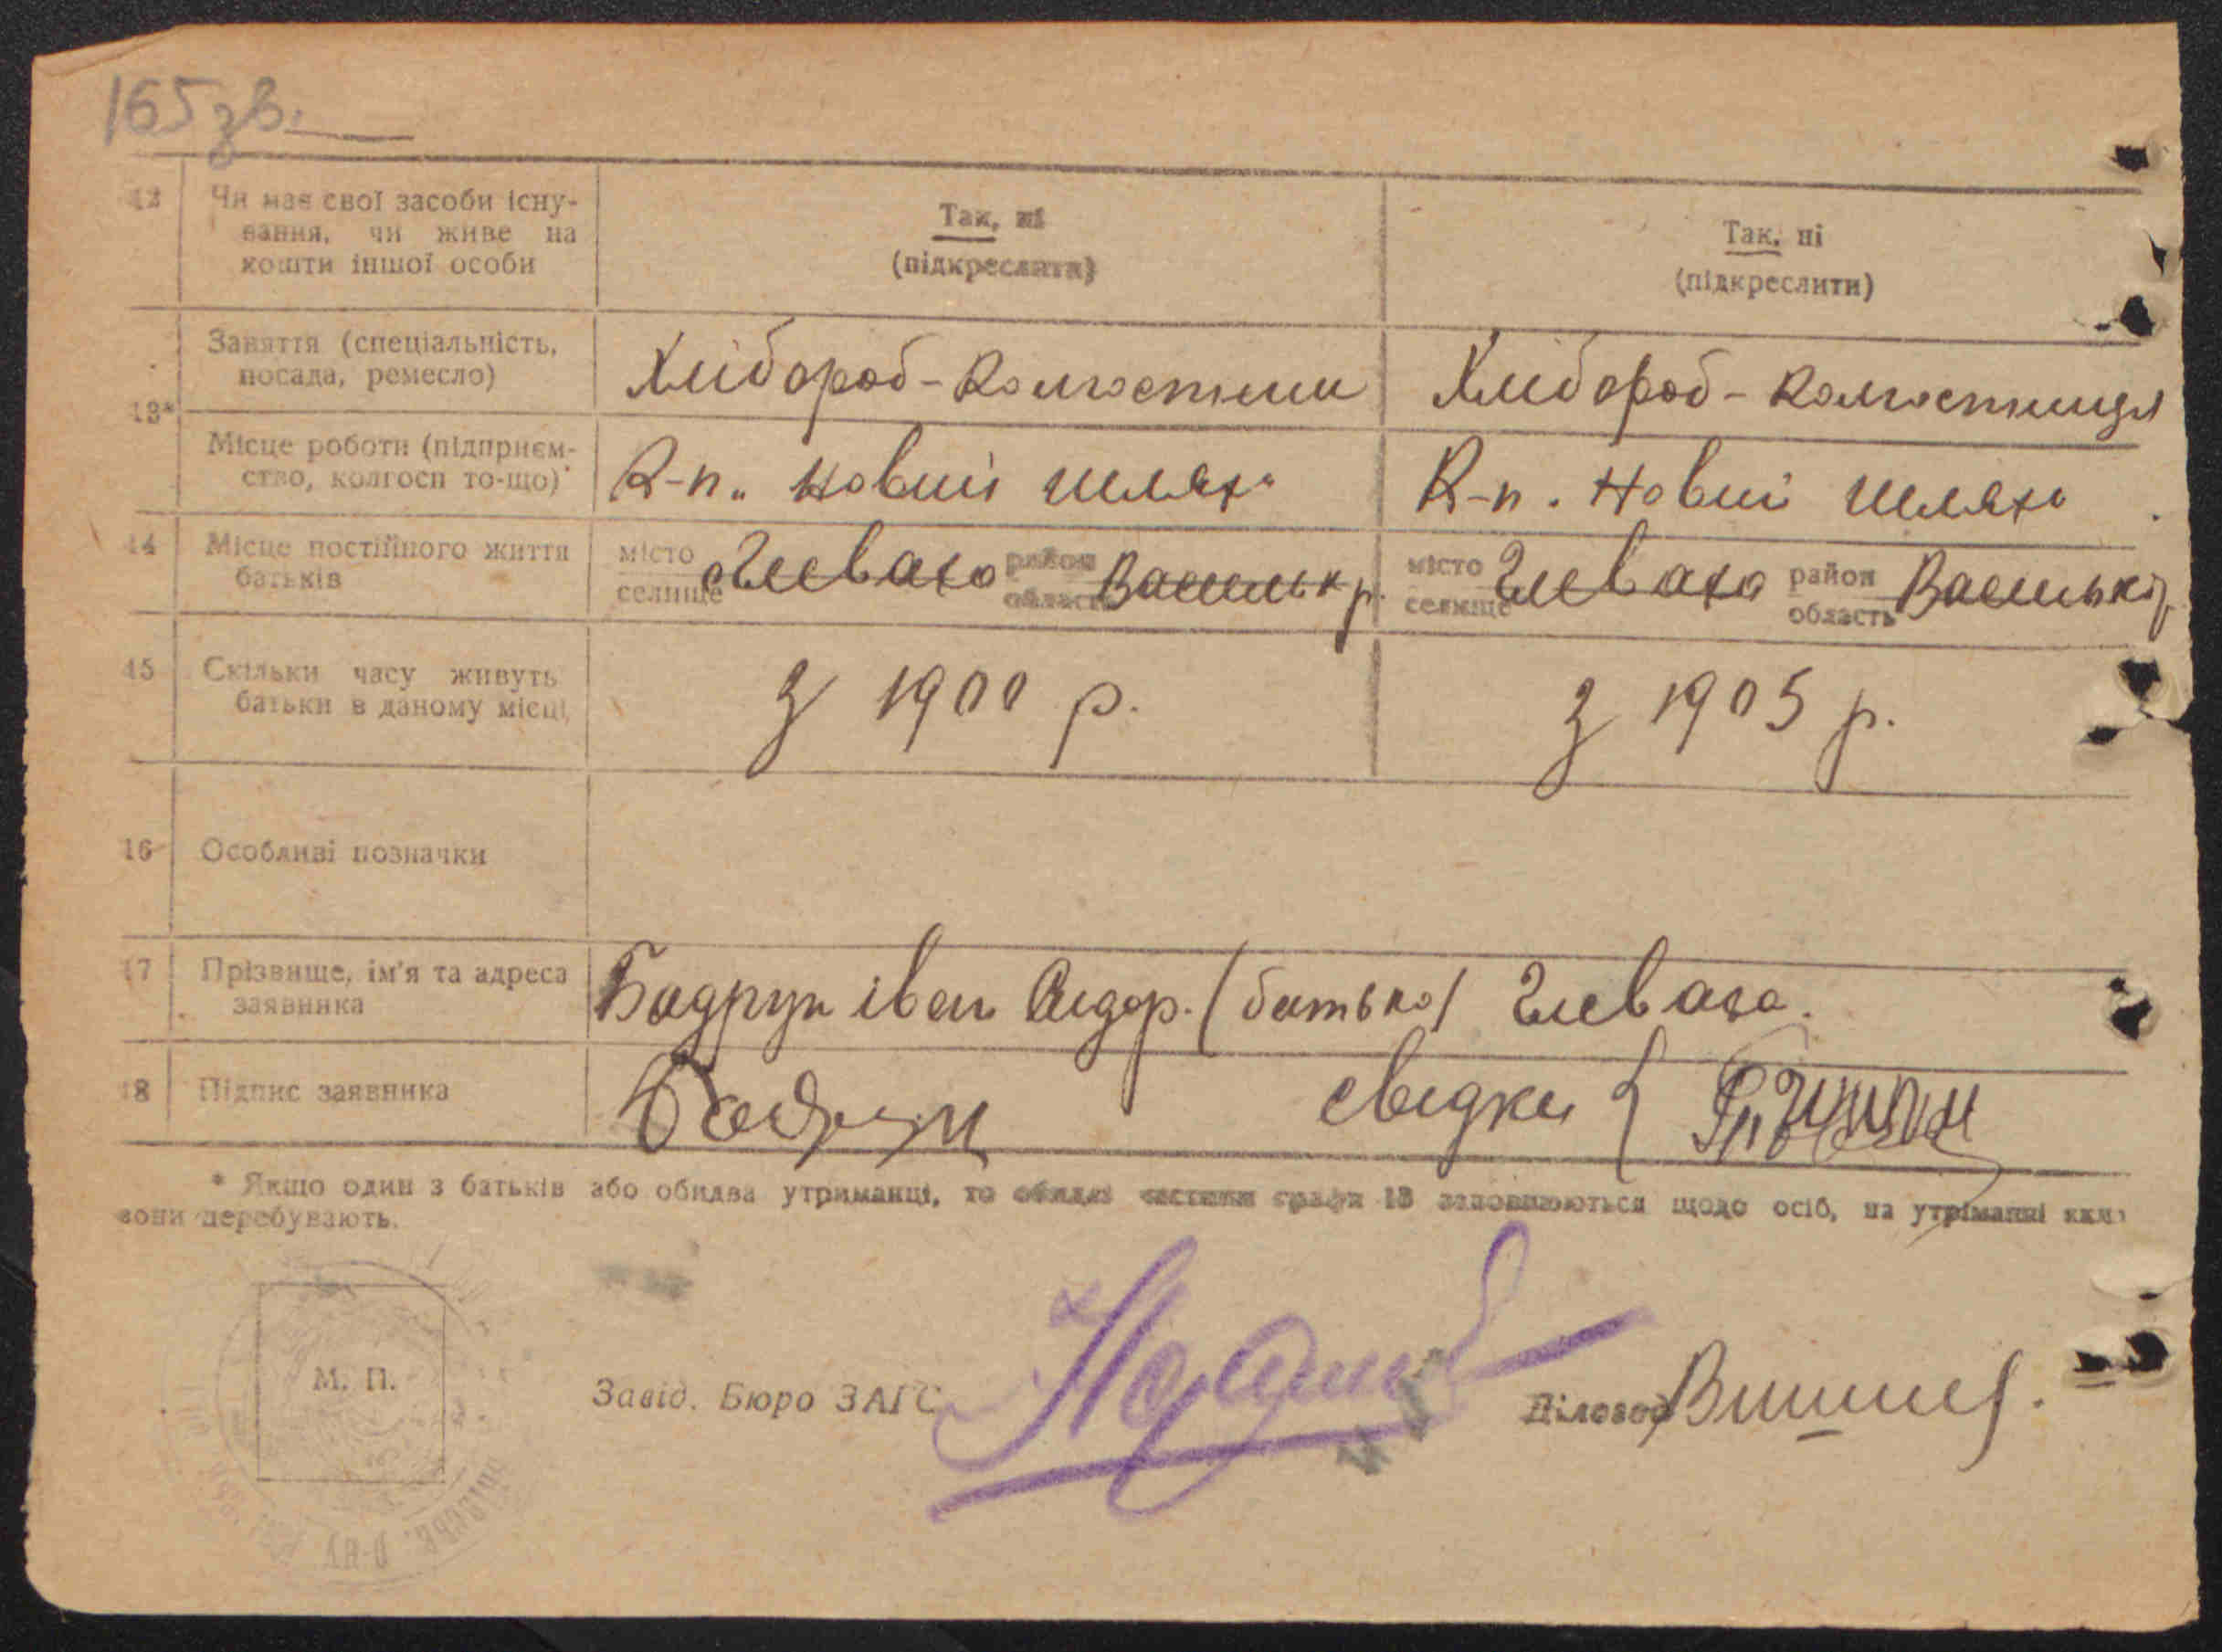 165 зв.
12 Чи має свої засоби існу-
вання, чи живе на
кошти іншої особи
Так, ні
(підкреслити)
Так, ні
(підкреслити)
13*
Заняття (спеціальність,
посада, ремесло)
Хлібороб-колгоспник
Хлібороб-колгоспниця
Місце роботи (підприєм-
ство, колгосп то-що)
К-п. Новий шлях
К-п. Новий шлях
14 Місце постійного життя
батьків
місто
селище
Глеваха
район
область
Васильк р.
місто
селище
Глеваха
район
область
Васильк р.
15 Скільки часу живуть
батьки в даному місці
з 1900 р.
з 1905 р.
16 Особливі позначки
17 Прізвище, ім'я та адреса
заявника
Бадрун іван Сидор. (батько) Глеваха.
18 Підпис заявника
Бадрун
свидки {
* Якщо один з батьків або обидва утриманці, то обидві частини графи 13 заповнюються щодо осіб, на утриманні яких
вони перебувають.
М. П.
Завід. Бюро ЗАГС
Діловод